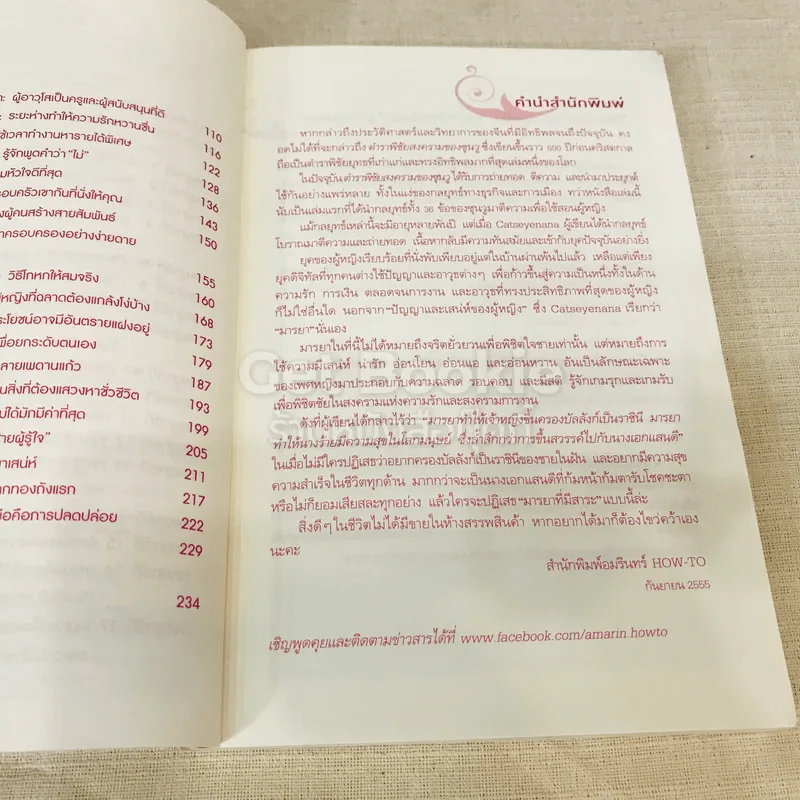 : ผู้อาวุโสเป็นครูและผู้สนับสนุนที่ดี
: ระยะห่างทำให้ความรักหวานชื่น 110
ช้เวลาทำงานหารายได้พิเศษ 116
รู้จักพูดคำว่า "ไม่" 122
มหัวใจดีที่สุด 128
รอบครัวเขากันที่นั่งให้คุณ 136
งผู้คนสร้างสายสัมพันธ์ 143
าครอบครองอย่างง่ายดาย 150
: วิธีโกหกให้สมจริง 155
ผู้หญิงที่ฉลาดต้องแกล้งโง่บ้าง 160
ระโยชน์อาจมีอันตรายแฝงอยู่ 168
พื่อยกระดับตนเอง 173
ลายเพดานแก้ว 179
นสิ่งที่ต้องแสวงหาชั่วชีวิต 187
ม่ได้มักมีค่าที่สุด 193
ายผู้รู้ใจ" 199
าเสน่ห์ 205
211
กทองถังแรก 217
มือคือการปลดปล่อย 222
229
234
คำนำสำนักพิมพ์
หากกล่าวถึงประวัติศาสตร์และวิทยาการของจีนที่มีอิทธิพลจนถึงปัจจุบัน คง
อดไม่ได้ที่จะกล่าวถึง ตำราพิชัยสงครามของซุนวู ซึ่งเขียนขึ้นราว 600 ปีก่อนคริสตกาล
ถือเป็นตำราพิชัยยุทธที่เก่าแก่และทรงอิทธิพลมากที่สุดเล่มหนึ่งของโลก
ในปัจจุบัน ตำราพิชัยสงครามของซุนวู ได้รับการถ่ายทอด ตีความ และนำมาประยุกต์
ใช้กันอย่างแพร่หลาย ทั้งในแง่ของกลยุทธ์ทางธุรกิจและการเมือง ทว่าหนังสือเล่มนี้
นับเป็นเล่มแรกที่ได้นำกลยุทธ์ทั้ง 36 ข้อของซุนวูมาตีความเพื่อใช้สอนผู้หญิง
แม้กลยุทธ์เหล่านี้จะมีอายุหลายพันปี แต่เมื่อ Catseyenana ผู้เขียนได้นำกลยุทธ์
โบราณมาตีความและถ่ายทอด เนื้อหากลับมีความทันสมัยและเข้ากับยุคปัจจุบันอย่างยิ่ง
ยุคของผู้หญิงเรียบร้อยที่นั่งพับเพียบอยู่แต่ในบ้านผ่านพ้นไปแล้ว เหลือแต่เพียง
ยุคดิจิทัลที่ทุกคนต่างใช้ปัญญาและอาวุธต่างๆ เพื่อก้าวขึ้นสู่ความเป็นหนึ่งทั้งในด้าน
ความรัก การเงิน ตลอดจนการงาน และอาวุธที่ทรงประสิทธิภาพที่สุดของผู้หญิง
ก็ไม่ใช่อื่นใด นอกจาก "ปัญญาและเสน่ห์ของผู้หญิง" ซึ่ง Catseyenana เรียกว่า
"มารยา" นั่นเอง
มารยาในที่นี้ไม่ได้หมายถึงจริตยั่วยวนเพื่อพิชิตใจชายเท่านั้น แต่หมายถึงการ
ใช้ความมีเสน่ห์ น่ารัก อ่อนโยน อ่อนแอ และอ่อนหวาน อันเป็นลักษณะเฉพาะ
ของเพศหญิงมาประกอบกับความฉลาด รอบคอบ และมีสติ รู้จักเกมรุกและเกมรับ
เพื่อพิชิตชัยในสงครามแห่งความรักและสงครามการงาน
ดังที่ผู้เขียนได้กล่าวไว้ว่า "มารยาทำให้เจ้าหญิงขึ้นครองบัลลังก์เป็นราชินี มารยา
ทำให้นางร้ายมีความสุขในโลกมนุษย์ ซึ่งล้ำลึกกว่าการขึ้นสวรรค์ไปกับนางเอกแสนดี"
ในเมื่อไม่มีใครปฏิเสธว่าอยากครองบัลลังก์เป็นราชินีของชายในฝัน และอยากมีความสุข
ความสำเร็จในชีวิตทุกด้าน มากกว่าจะเป็นนางเอกแสนดีที่ก้มหน้าก้มตารับโชคชะตา
หรือไม่ก็ยอมเสียสละทุกอย่าง แล้วใครจะปฏิเสธ "มารยาที่มีสาระ" แบบนี้ล่ะ
สิ่งดีๆ ในชีวิตไม่ได้มีขายในห้างสรรพสินค้า หากอยากได้มาก็ต้องไขว่คว้าเอง
นะคะ
สำนักพิมพ์อมรินทร์ HOW-TO
กันยายน 2555
เชิญพูดคุยและติดตามข่าวสารได้ที่ www.facebook.com/amarin.howto